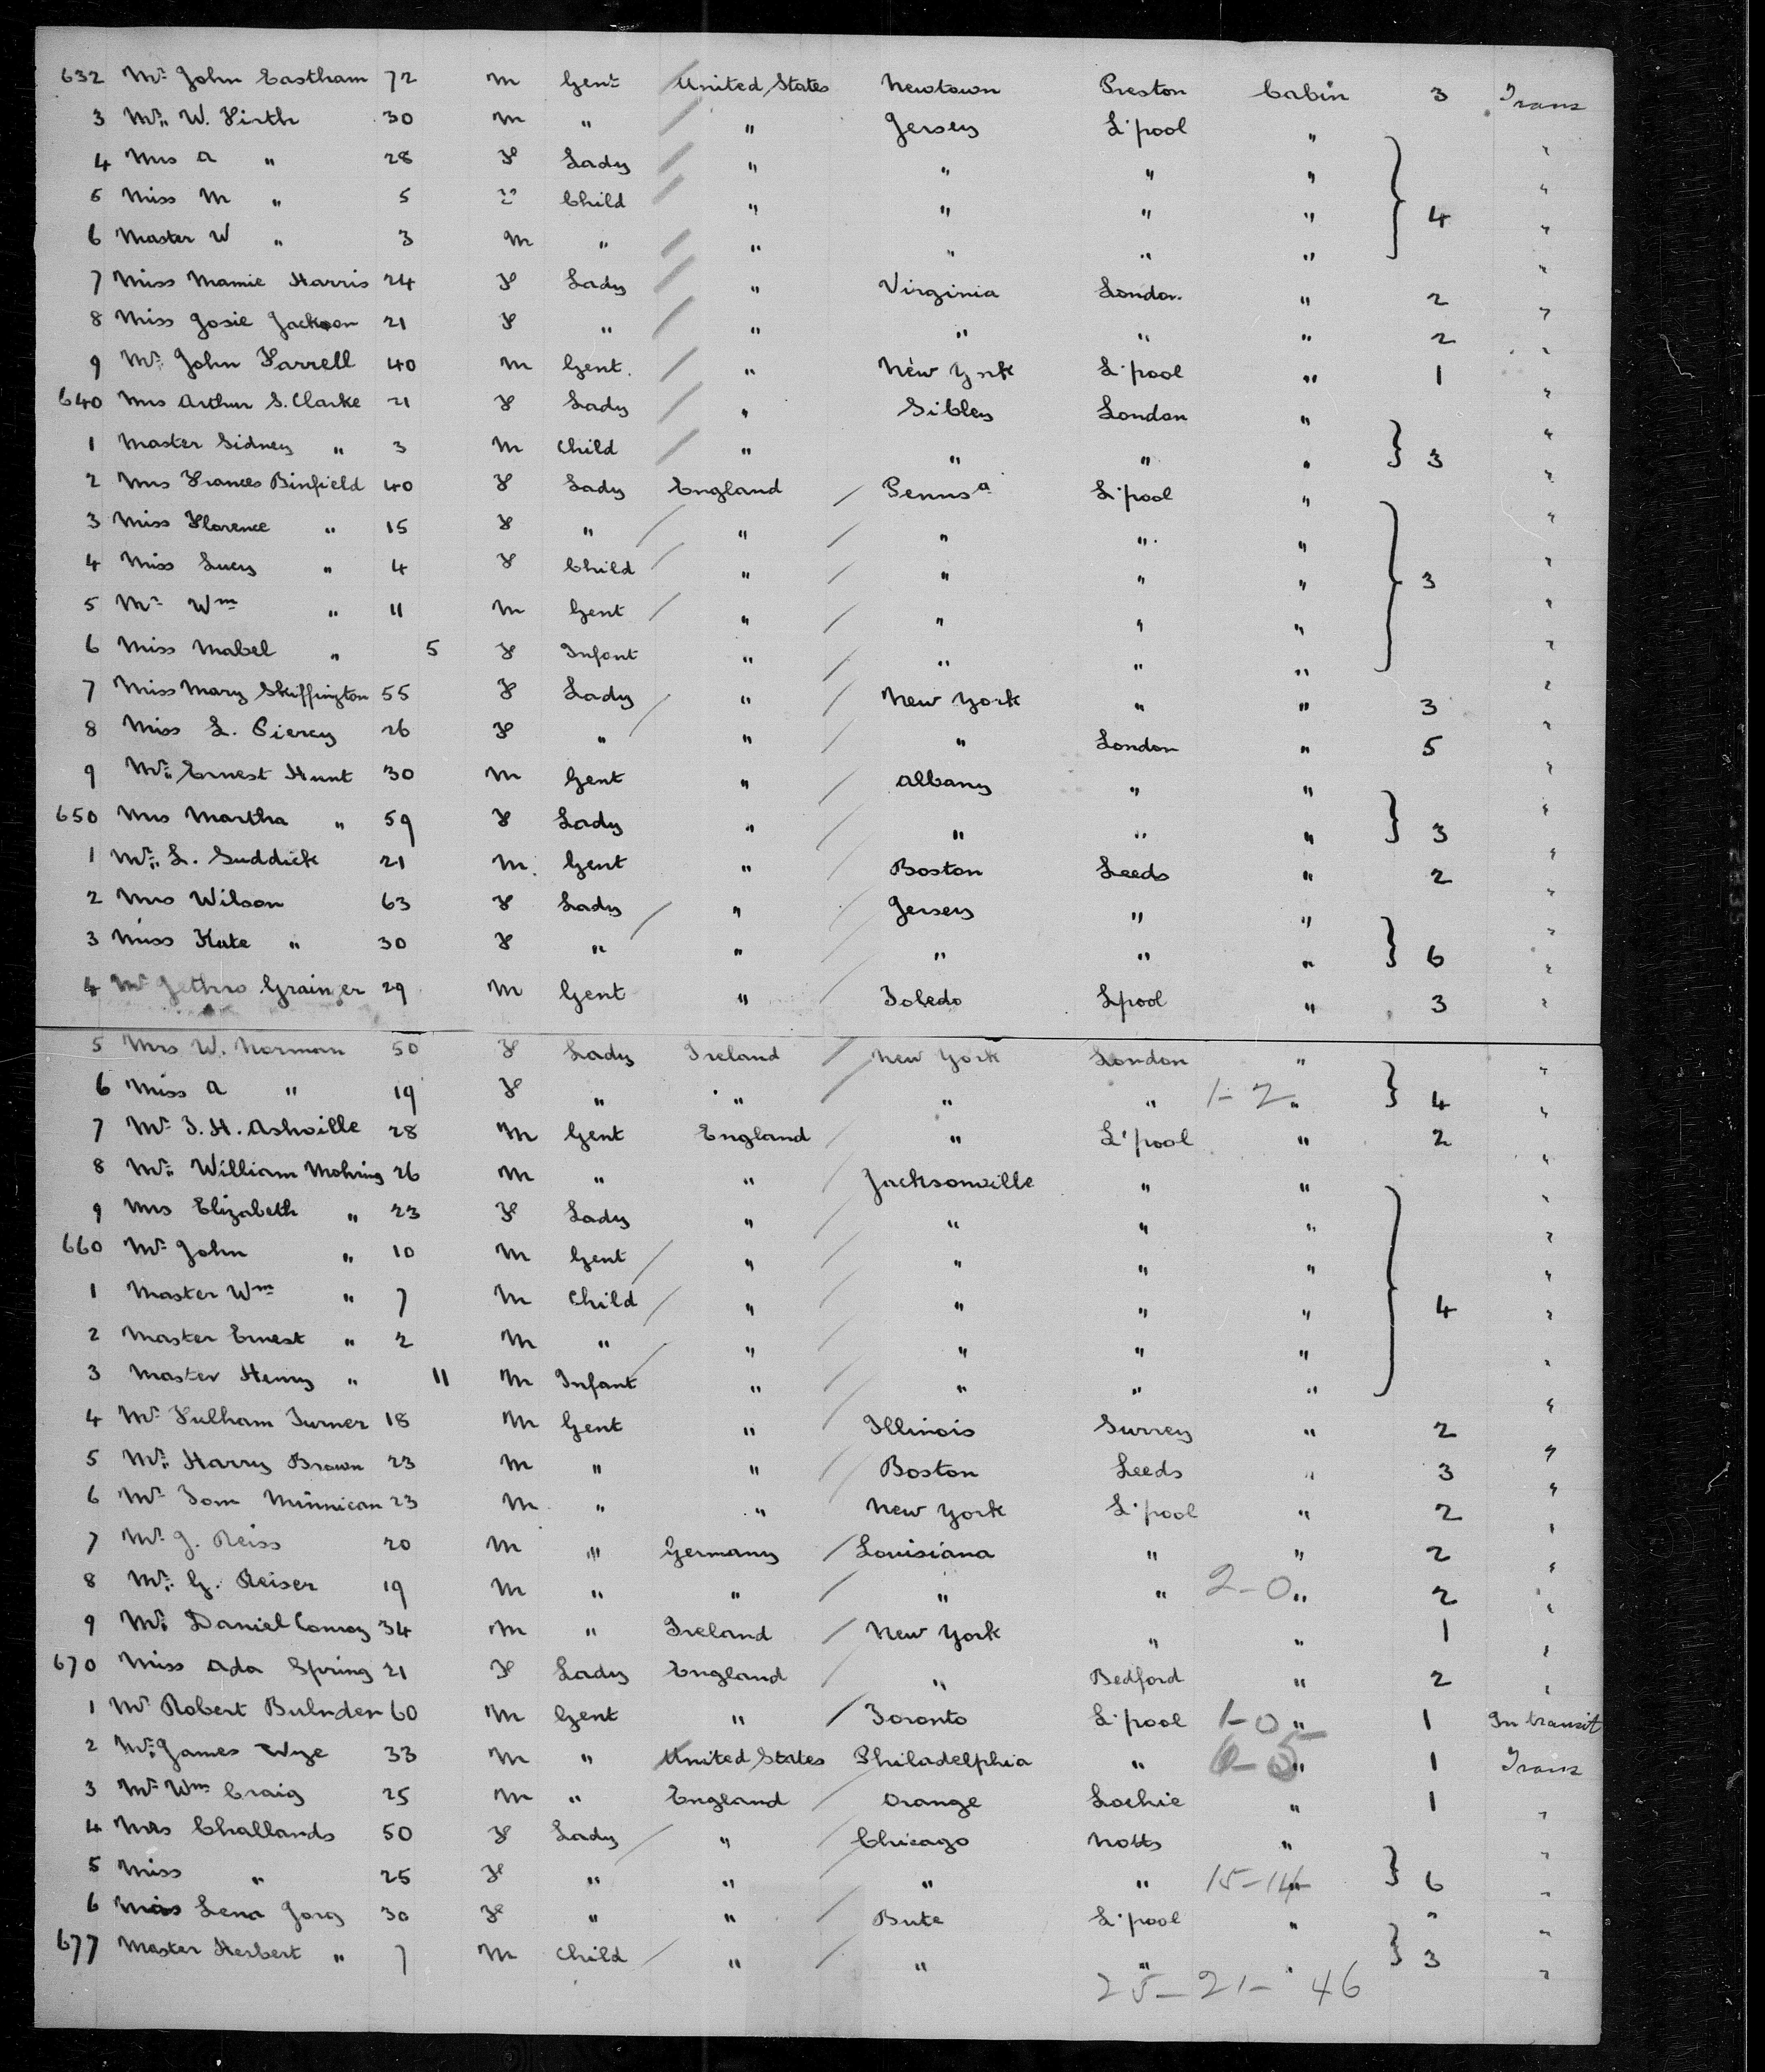 632 Mr John Eastham 72 M Gent United States Newtown Preston Cabin 3 Trans
3 Mr W. Firth 30 M " " Jersey L'pool " "
4 Mrs A " 28 F Lady " " " " "
5 Miss M " 5 " Child " " " " 4 "
6 Master W " 3 M " " " " " "
7 Miss Mamie Harris 24 F Lady " Virginia London " 2 "
8 Miss Josie Jackson 21 F " " " " " 2 "
9 Mr John Farrell 40 M Gent. " New York L'pool " 1 "
640 Mrs Arthur S. Clarke 21 F Lady " Sibley London " "
1 Master Sidney " 3 M Child " " " " 3 "
2 Mrs Frances Binfield 40 F Lady England Penns a L'pool " "
3 Miss Florence " 15 F " " " " " "
4 Miss Lucy " 4 F Child " " " " 3 "
5 Mr Wm " 11 M Gent " " " " "
6 Miss Mabel " 5 F Infant " " " " "
7 Miss Mary Skiffington 55 F Lady " New York " " 3 "
8 Miss L. Piercy 26 F " " " London " 5 "
9 Mr Ernest Hunt 30 M Gent " Albany " " "
650 Mrs Martha " 59 F Lady " " " " 3 "
1 Mr L. Suddick 21 M. Gent " Boston Leeds " 2 "
2 Mrs Wilson 63 F Lady " Jersey " " "
3 Miss Kate " 30 F " " " " " 6 "
4 Mr Jethro Grainger 29 M Gent " Toledo Lpool " 3 "
5 Mrs W. Norman 50 F Lady Ireland New York London " "
6 Miss A " 19 F " " " " 1-2 " 4 "
7 Mr T. H. Ashville 28 M Gent England " L'pool " 2 "
8 Mr William Mohring 26 M " " Jacksonville " " "
9 Mrs Elizabeth " 23 F Lady " " " " "
660 Mr John " 10 M Gent " " " " "
1 Master Wm " 7 M Child " " " " 4 "
2 Master Ernest " 2 M " " " " " "
3 Master Henry " 11 M Infant " " " " "
4 Mr Fulham Turner 18 M Gent " Illinois Surrey " 2 "
5 Mr Harry Brown 23 M " " Boston Leeds " 3 "
6 Mr Tom Minnican 23 M " " New York L'pool " 2 "
7 Mr J. Reiss 20 M " Germany Louisiana " " 2 "
8 Mr G. Reiser 19 M " " " " 2-0 " 2 "
9 Mr Daniel Conroy 34 M " Ireland New York " " 1 "
670 Miss Ada Spring 21 F Lady England " Bedford " 2 "
1 Mr Robert Bulnden 60 M Gent " Toronto L'pool 1-0 " 1 In transit
2 Mr James Wyze 33 M " United States Philadelphia " " 1 Trans
3 Mr Wm Craig 25 M " England Orange Lochie " 1 "
4 Mrs Challands 50 F Lady " Chicago Notts " "
5 Miss " 25 F " " " " 15-14 " 6 "
6 Mrs Lena Jory 30 F " " Bute L'pool " " "
677 Master Herbert " 7 M Child " " " " 3 "
25-21- 46